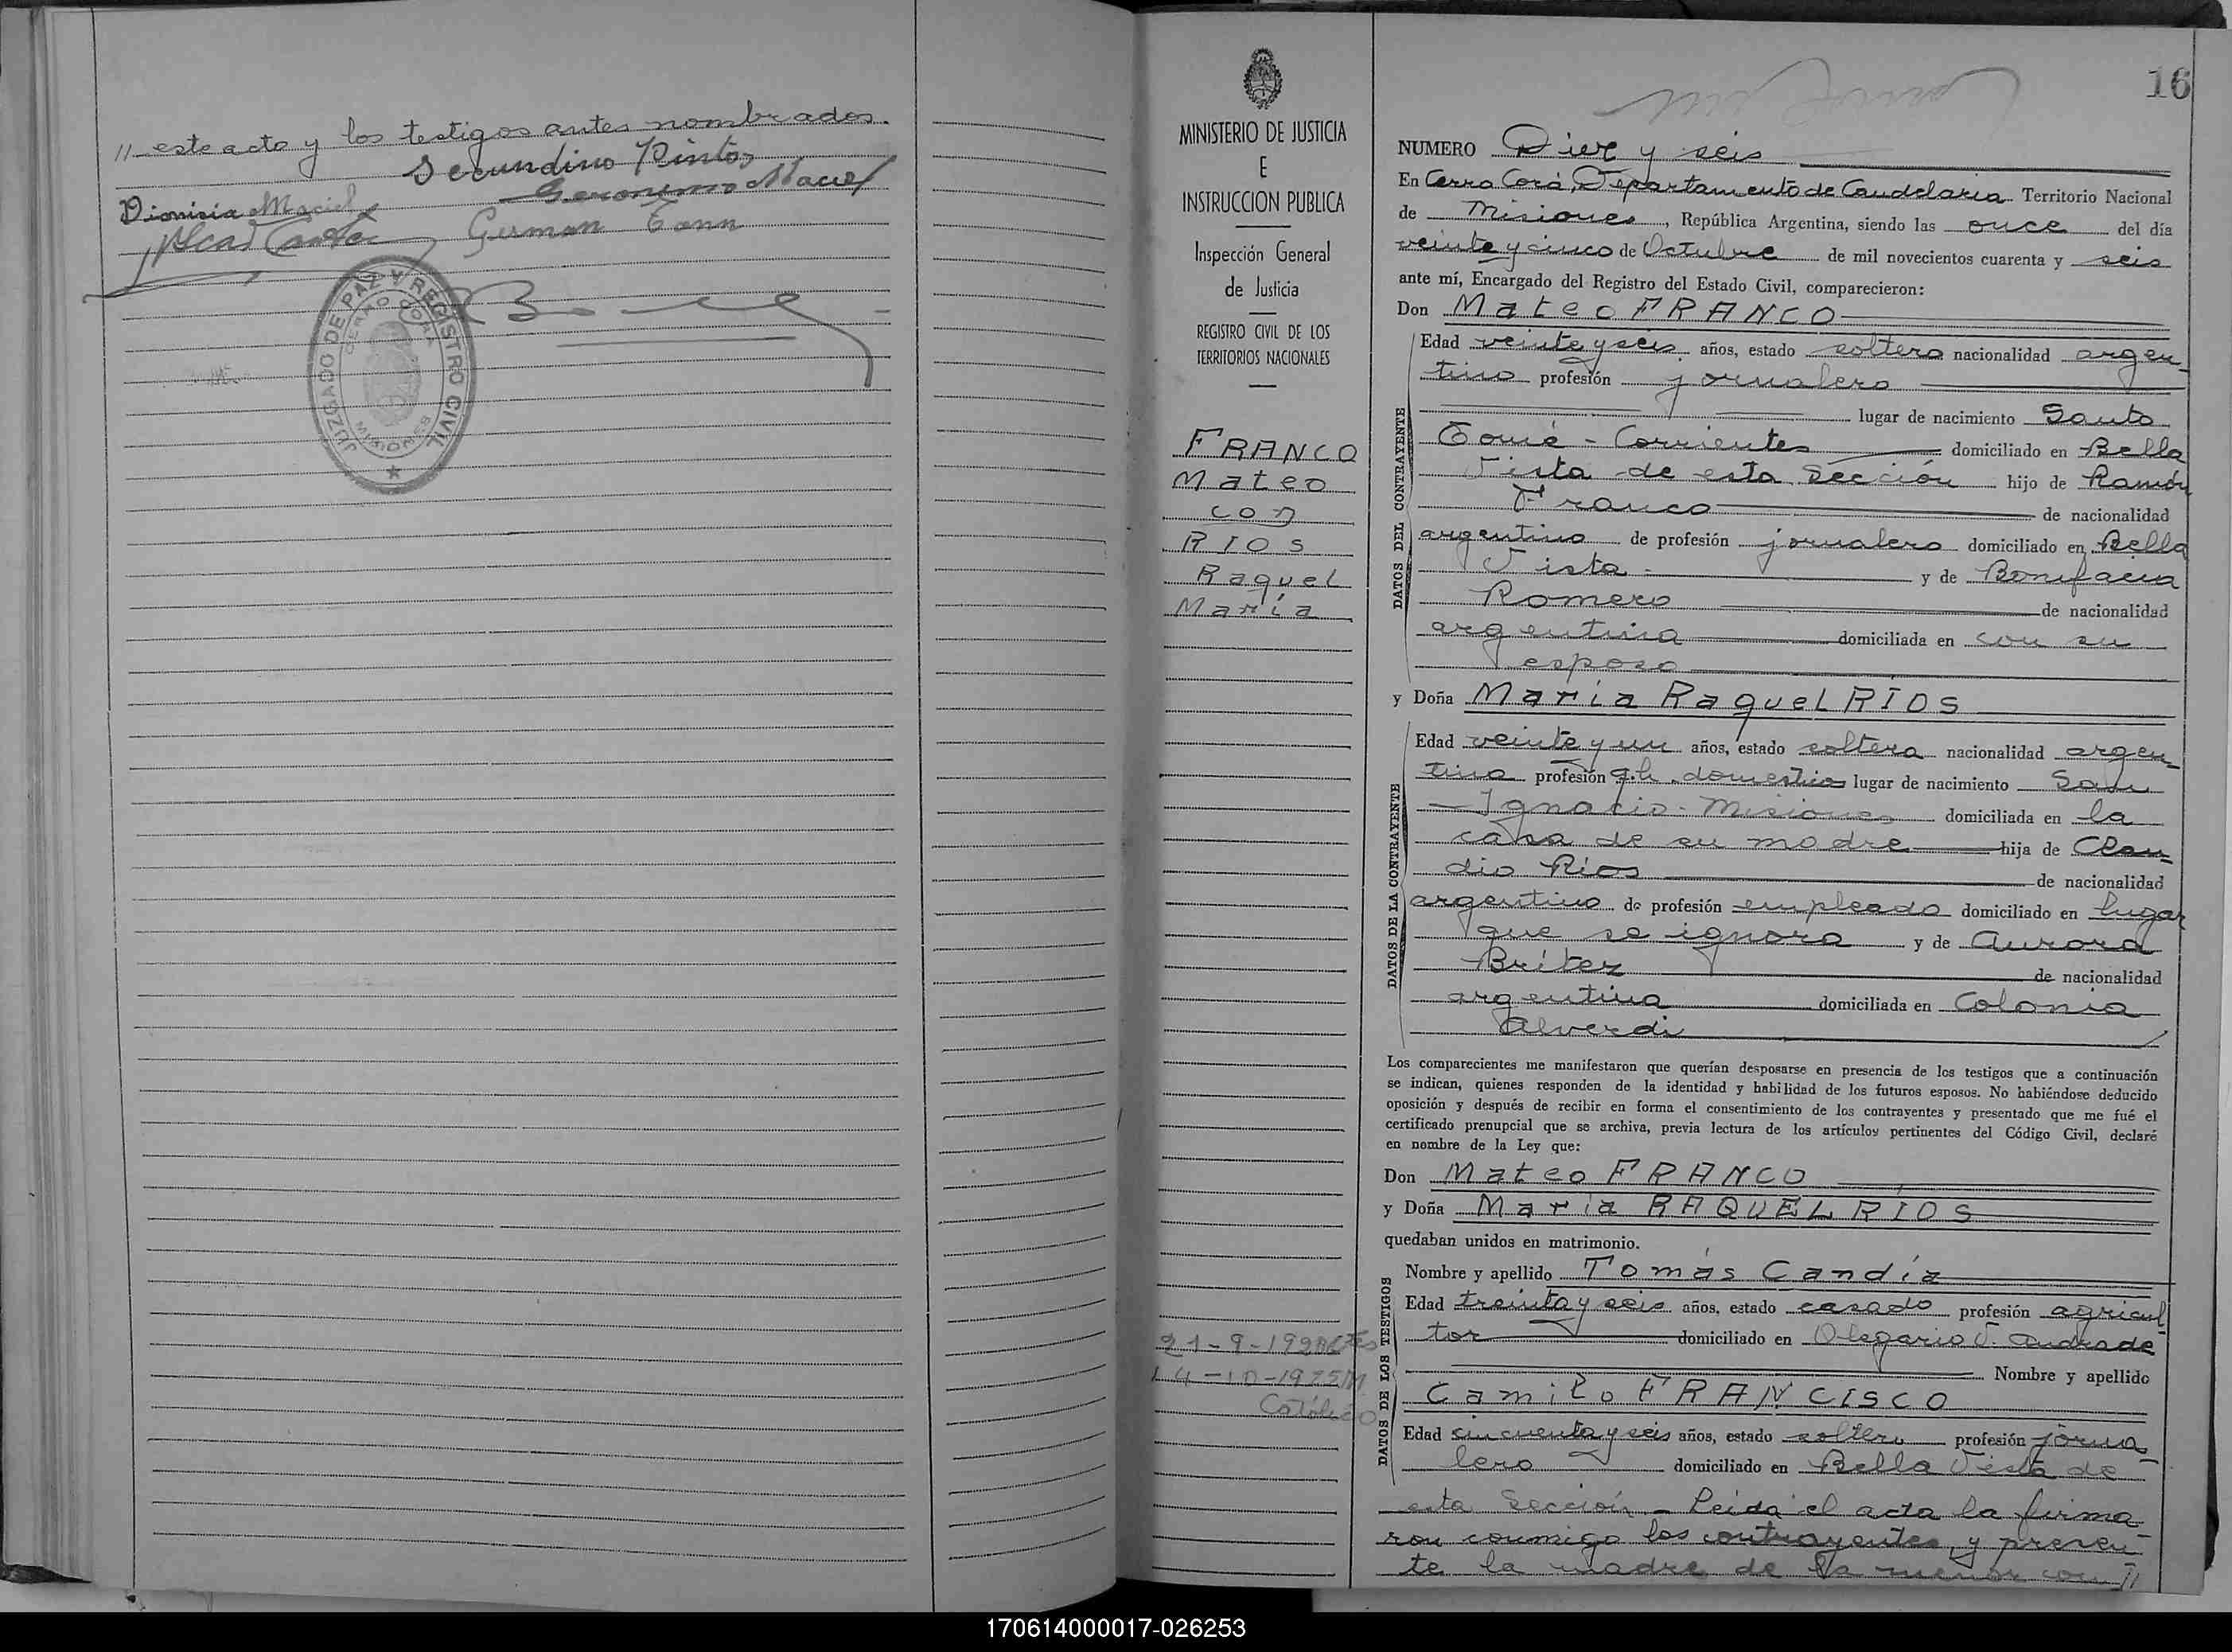 // este acto y los testigos antes nombrados.
Secundino Pintos
Geronimo Maciel
Dionisia Maciel
German Tann
JUZGADO DE PAZ Y REGISTRO CIVIL
CERRO CORA
MISIONES
MINISTERIO DE JUSTICIA
E
INSTRUCCION PUBLICA
Inspección General
de Justicia
REGISTRO CIVIL DE LOS
TERRITORIOS NACIONALES
FRANCO
Mateo
con
RIOS
Raquel
María
21-9-192
14-10-1925 M
Católico
16
NUMERO Diez y seis
En Cerro Corá, Departamento de Candelaria Territorio Nacional
de Misiones, República Argentina, siendo las once del día
veinte y cinco de Octubre de mil novecientos cuarenta y seis
ante mí, Encargado del Registro del Estado Civil, comparecieron:
Don Mateo FRANCO
DATOS DEL CONTRAYENTE
Edad veinte y seis años, estado soltero nacionalidad argen-
tino profesión jornalero
lugar de nacimiento Santo
Tomé - Corrientes domiciliado en Bella
Vista de esta Sección hijo de Ramón
Franco de nacionalidad
argentino de profesión jornalero domiciliado en Bella
Vista y de Bonifacia
Romero de nacionalidad
argentina domiciliada en con su
esposo
y Doña María Raquel RIOS
DATOS DE LA CONTRAYENTE
Edad veinte y un años, estado soltera nacionalidad argen-
tina profesión q.h. domesticos lugar de nacimiento San
Ignacio - Misiones domiciliada en la
casa de su madre hija de Clau-
dio Ríos de nacionalidad
argentino de profesión empleado domiciliado en lugar
que se ignora y de Aurora
Britez de nacionalidad
argentina domiciliada en Colonia
Alverdi
Los comparecientes me manifestaron que querían desposarse en presencia de los testigos que a continuación
se indican, quienes responden de la identidad y habilidad de los futuros esposos. No habiéndose deducido
oposición y después de recibir en forma el consentimiento de los contrayentes y presentado que me fué el
certificado prenupcial que se archiva, previa lectura de los artículos pertinentes del Código Civil, declaré
en nombre de la Ley que:
Don Mateo FRANCO
y Doña María RAQUEL RÍOS
quedaban unidos en matrimonio.
DATOS DE LOS TESTIGOS
Nombre y apellido Tomás Candía
Edad treinta y seis años, estado casado profesión agricul-
tor domiciliado en Olegario V. Andrade
Nombre y apellido
Camilo FRANCISCO
Edad cincuenta y seis años, estado soltero profesión jorna-
lero domiciliado en Bella Vista de
esta Sección - Leída el acta la firma-
ron conmigo los contrayentes, y presen-
te la madre de la menor con //
170614000017-026253